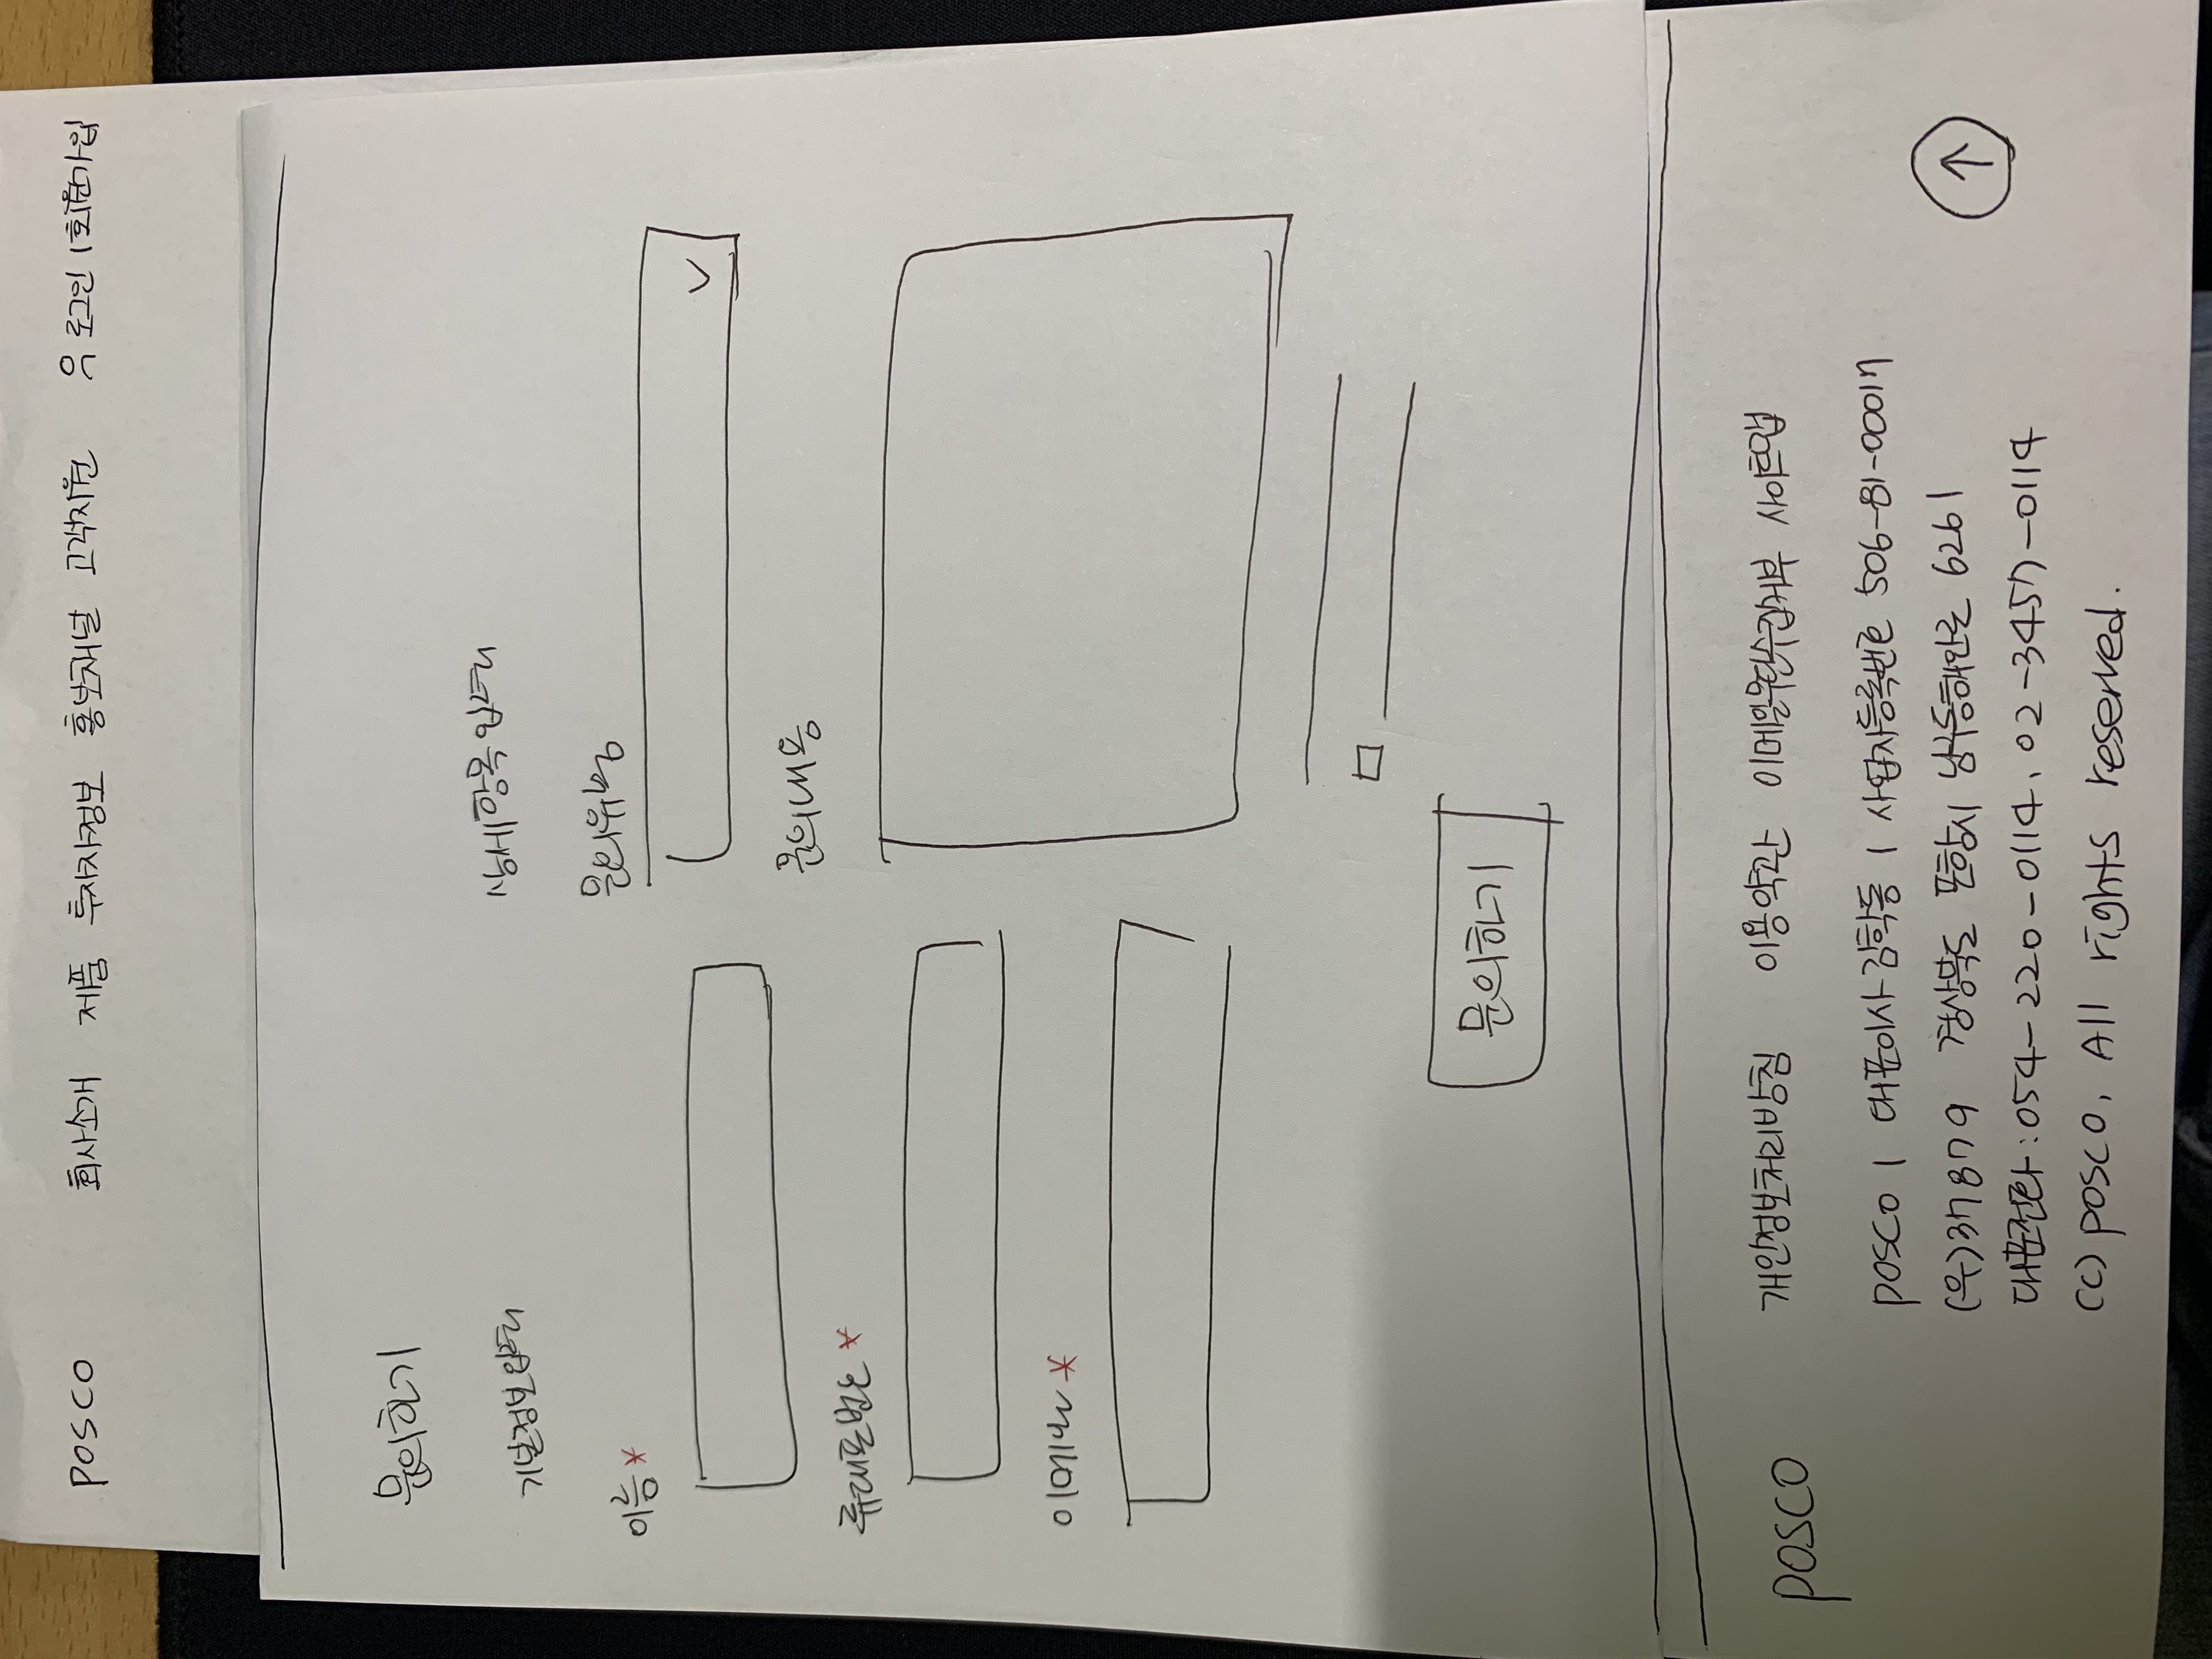 POSCO 회사소개 제품 투자자정보 홍보채널 고객지원 로그인 | 회원가입
문의하기
기본정보입력
상세항목 입력
이름 *
문의유형
휴대폰번호 *
문의내용
이메일 *
문의하기
POSCO
개인정보처리방침 이용약관 이메일무단수집거부 사이트맵
POSCO | 대표이사 김학동 | 사업자등록번호 506-81-00017
(우)37879 경상북도 포항시 남구동해안로 6261
대표전화 : 054-220-0114, 02-3457-0114
(C) POSCO, All rights reserved.